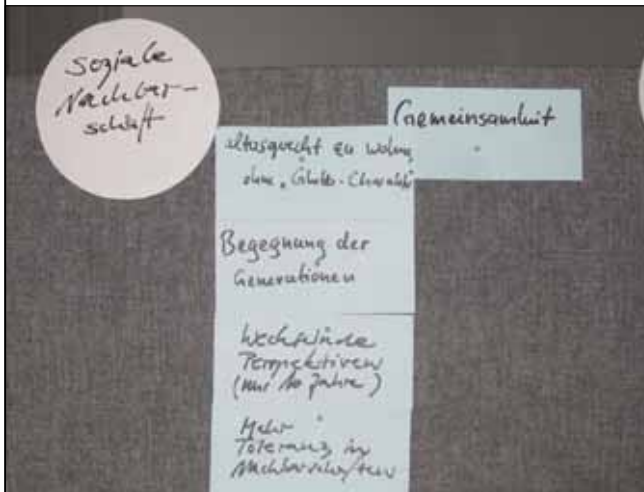 Soziale
Nachbar-
schaft
Gemeinsamkeit
altersgerecht zu wohnen
ohne "Ghetto-Charakter"
Begegnung der
Generationen
Wechselnde
Perspektiven
(nur 10 Jahre)
Mehr
Toleranz in
Nachbarschaften